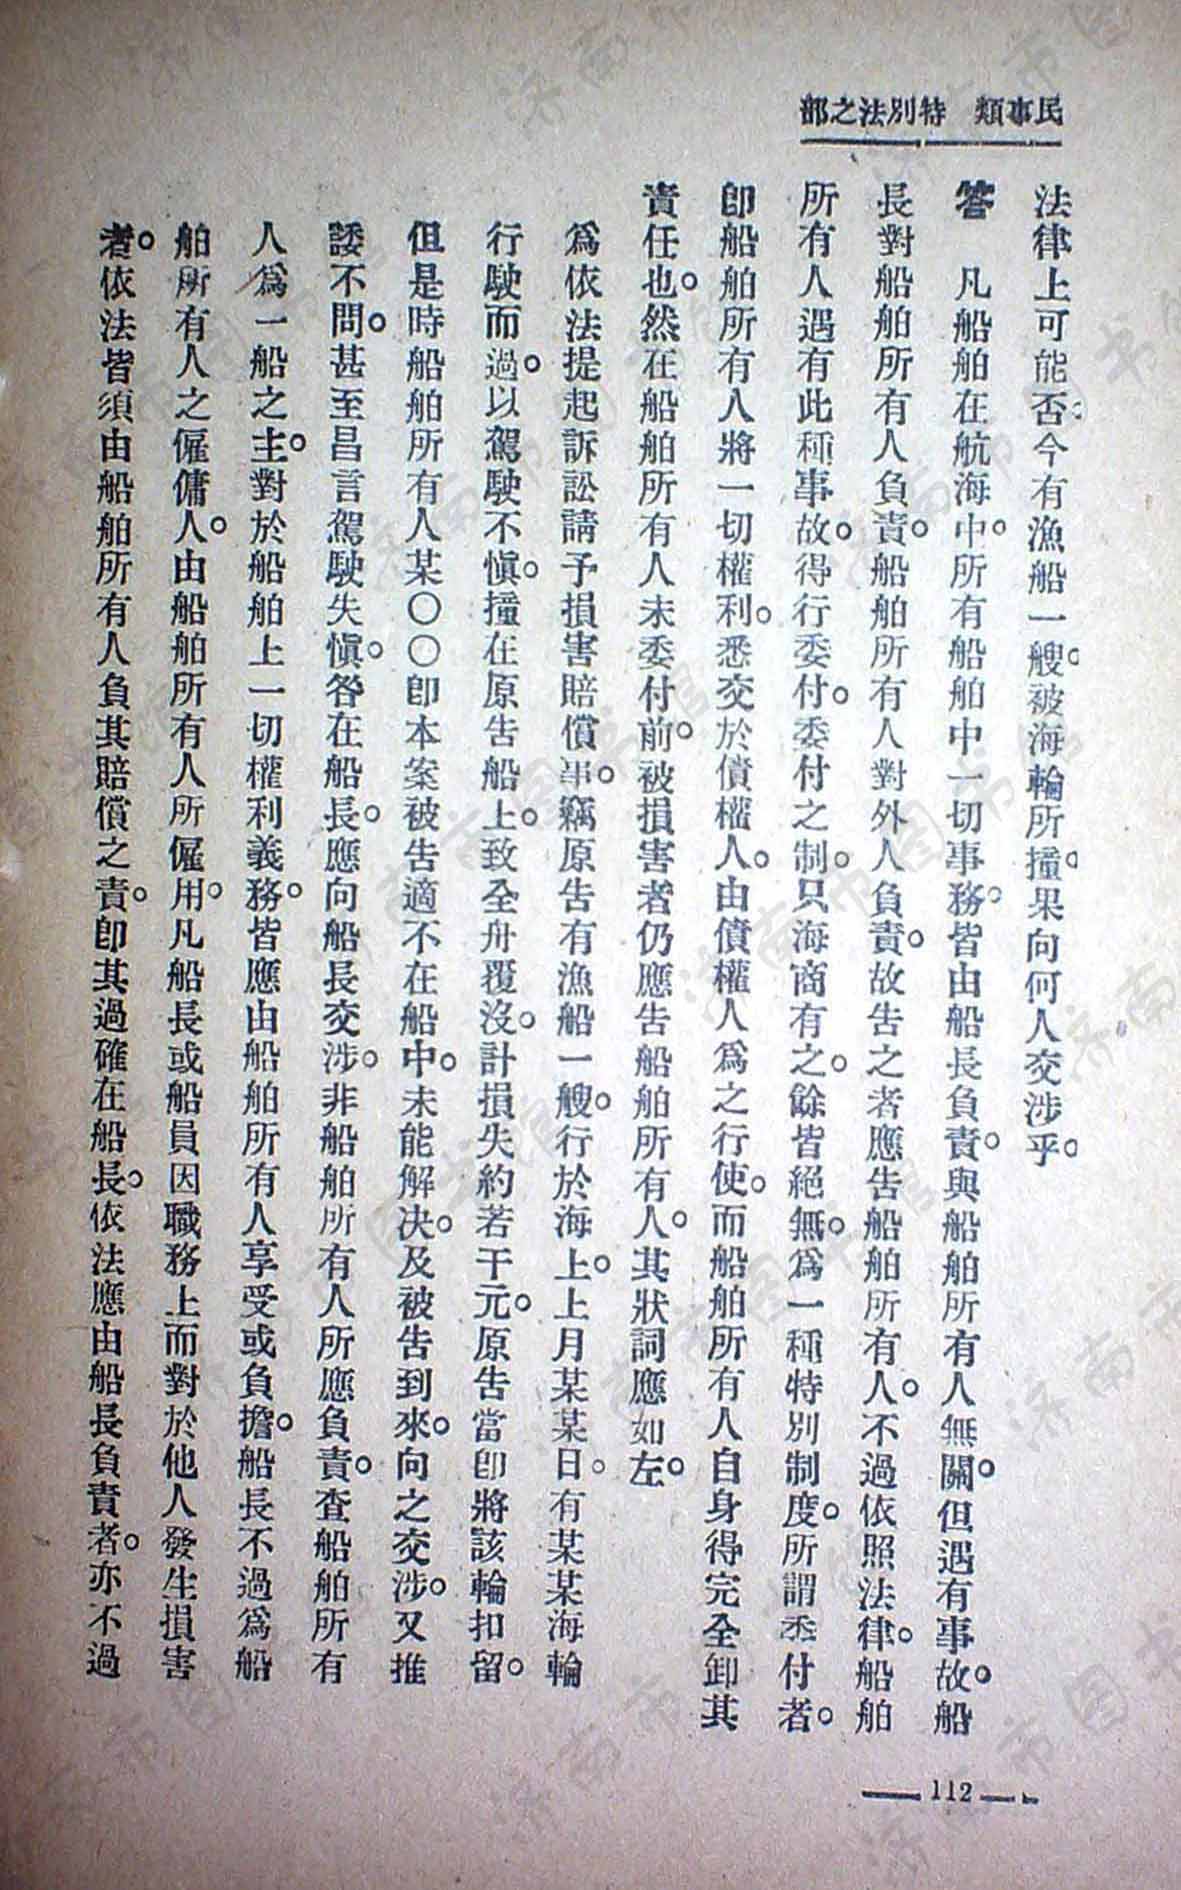 民事類　特別法之部
法律上可能否。今有漁船一艘。被海輪所撞。果向何人交涉乎。
答　凡船舶在航海中。所有船舶中一切事務。皆由船長負責。與船舶所有人無關。但遇有事故。船
長對船舶所有人負責。船舶所有人對外人負責。故告之者應告船舶所有人。不過依照法律。船舶
所有人遇有此種事故。得行委付。委付之制。只海商有之。餘皆絕無。爲一種特別制度。所謂委付者。
卽船舶所有人將一切權利。悉交於債權人。由債權人爲之行使。而船舶所有人自身得完全卸其
責任也。然在船舶所有人未委付前。被損害者仍應告船舶所有人。其狀詞應如左。
爲依法提起訴訟請予損害賠償事。竊原告有漁船一艘。行於海上。上月某某日。有某某海輪
行駛而過。以駕駛不愼。撞在原告船上。致全舟覆沒。計損失約若干元。原告當卽將該輪扣留。
但是時船舶所有人某〇〇卽本案被告適不在船中。未能解决。及被告到來。向之交涉。又推
諉不問。甚至昌言駕駛失愼。咎在船長。應向船長交涉。非船舶所有人所應負責。查船舶所有
人爲一船之主。對於船舶上一切權利義務。皆應由船舶所有人享受或負擔。船長不過爲船
舶所有人之僱傭人。由船舶所有人所僱用。凡船長或船員因職務上而對於他人發生損害
者。依法皆須由船舶所有人負其賠償之責。卽其過確在船長。依法應由船長負責者。亦不過
112
济南市图书馆